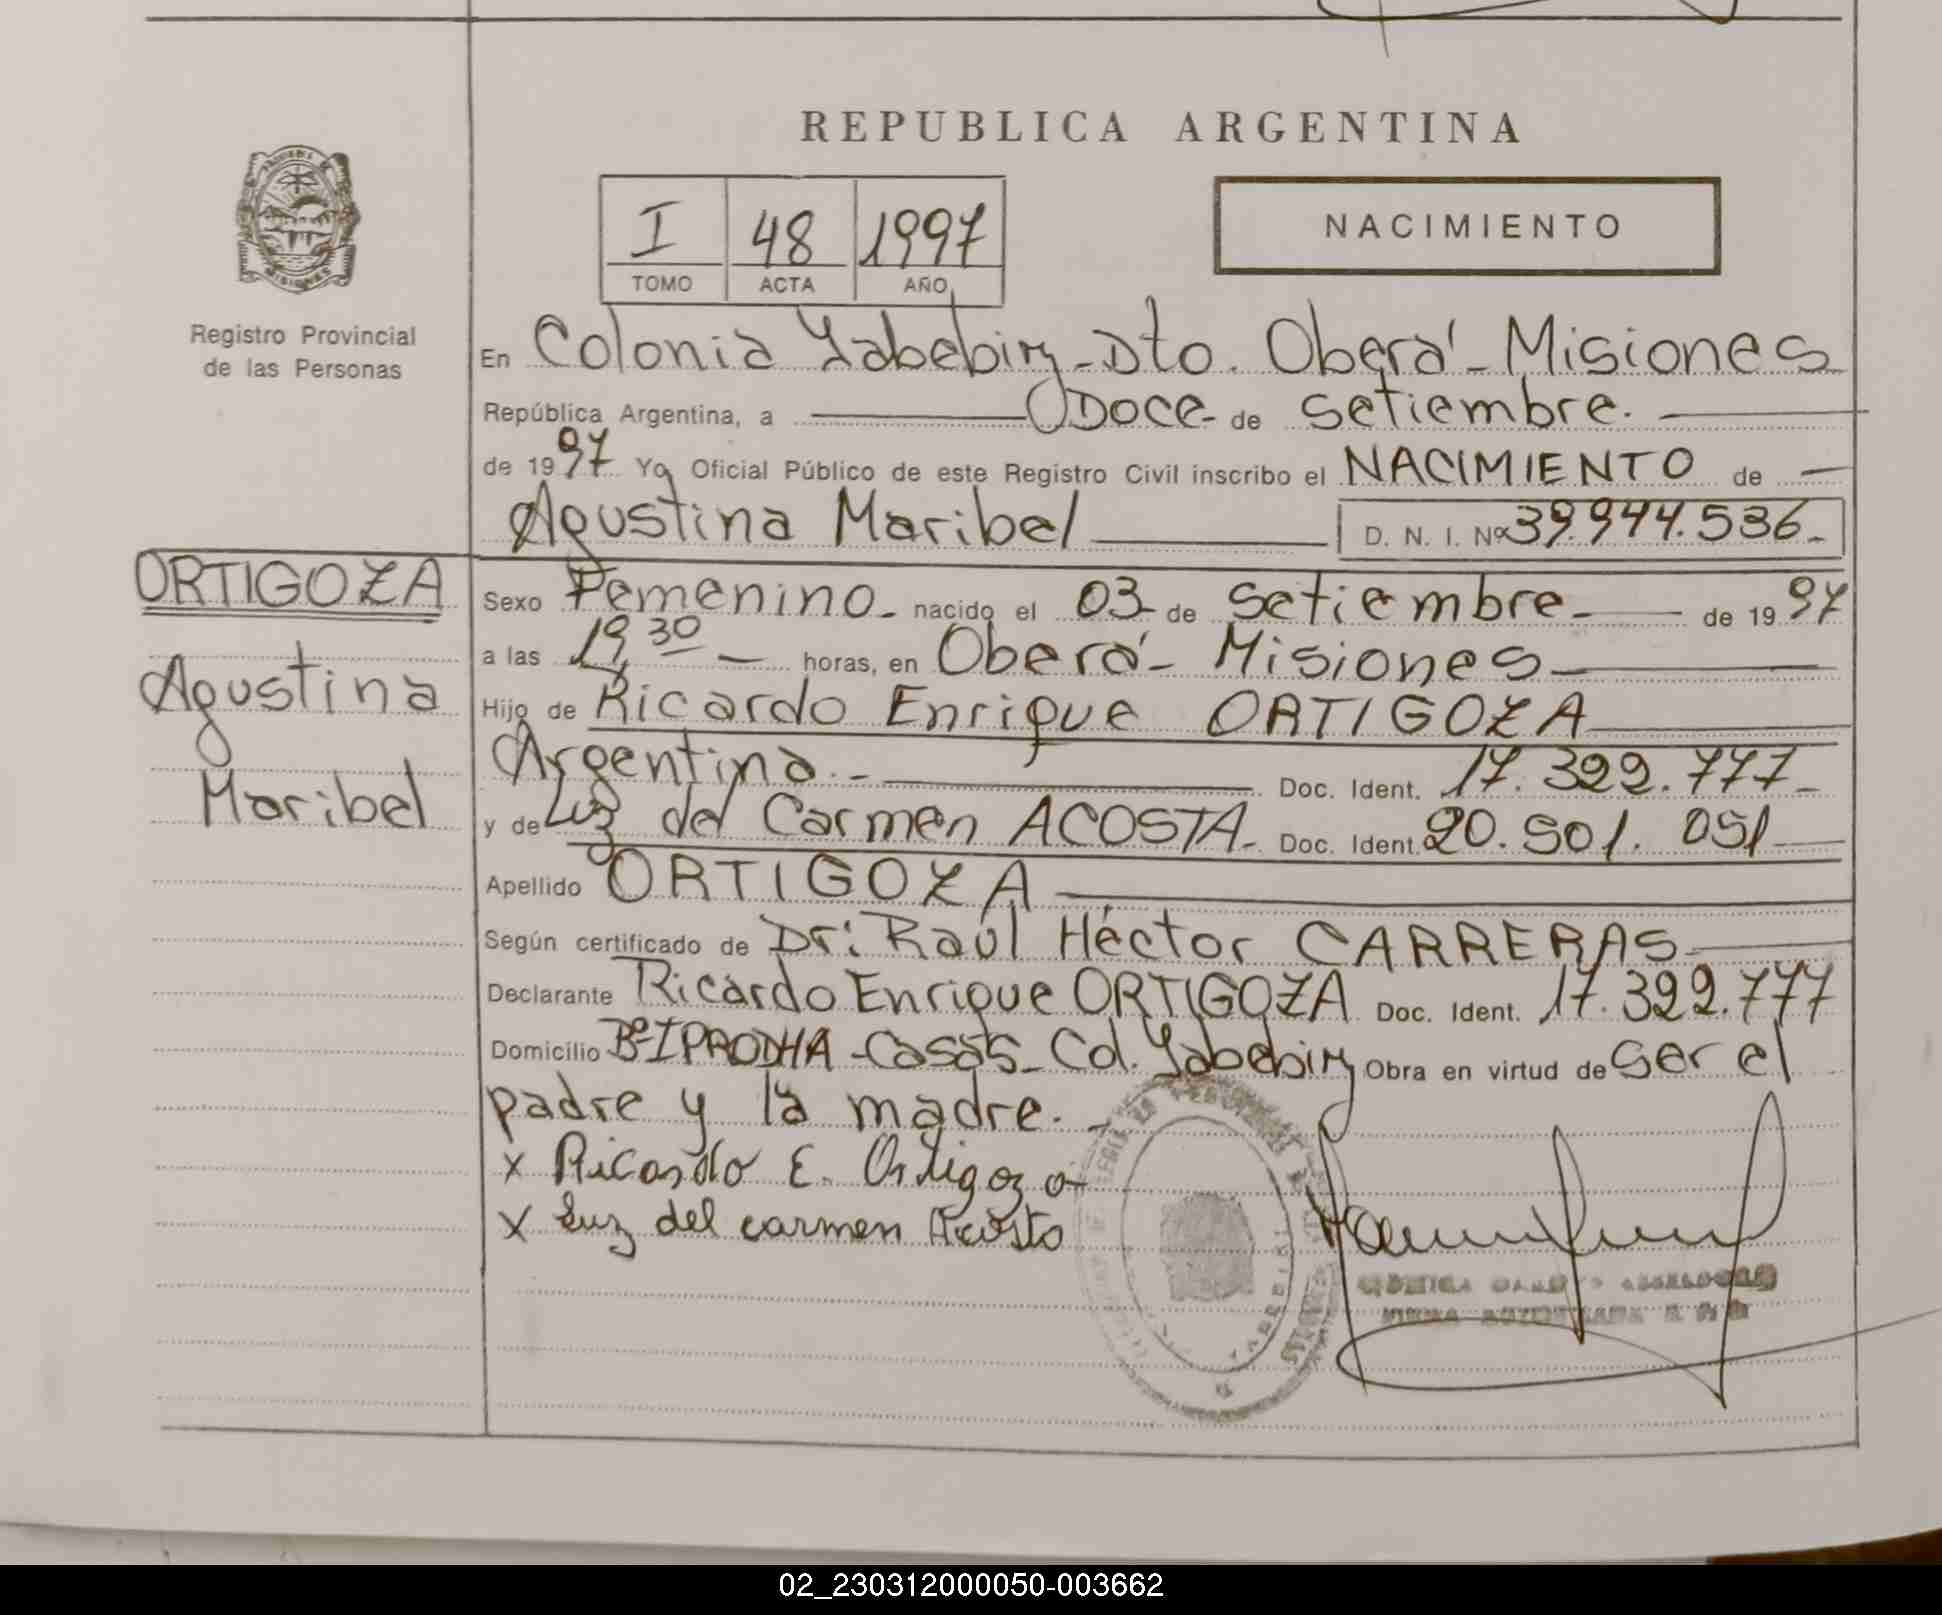 REPUBLICA ARGENTINA
I 48 1997
TOMO ACTA AÑO
NACIMIENTO
MISIONES
Registro Provincial
de las Personas
En Colonia Yabebiry - Dto. Oberá - Misiones
República Argentina, a Doce de setiembre.
de 1997 Yo, Oficial Público de este Registro Civil inscribo el NACIMIENTO de
Agustina Maribel D. N. I. Nº 39.944.536.-
ORTIGOZA
Agustina
Maribel
Sexo Femenino - nacido el 03 - de setiembre - de 1997
a las 19,30 - horas, en Oberá - Misiones -
Hijo de Ricardo Enrique ORTIGOZA
Argentina. - Doc. Ident. 17.322.777 -
y de Luz del Carmen ACOSTA - Doc. Ident. 20.501.051
Apellido ORTIGOZA
Según certificado de Dr: Raúl Héctor CARRERAS
Declarante Ricardo Enrique ORTIGOZA Doc. Ident. 17.322.777
Domicilio Bº IPRODHA - Casas - Col. Yabebiry Obra en virtud de ser el
padre y la madre. -
x Ricardo E. Ortigoza
x Luz del carmen Acosta
02_230312000050-003662